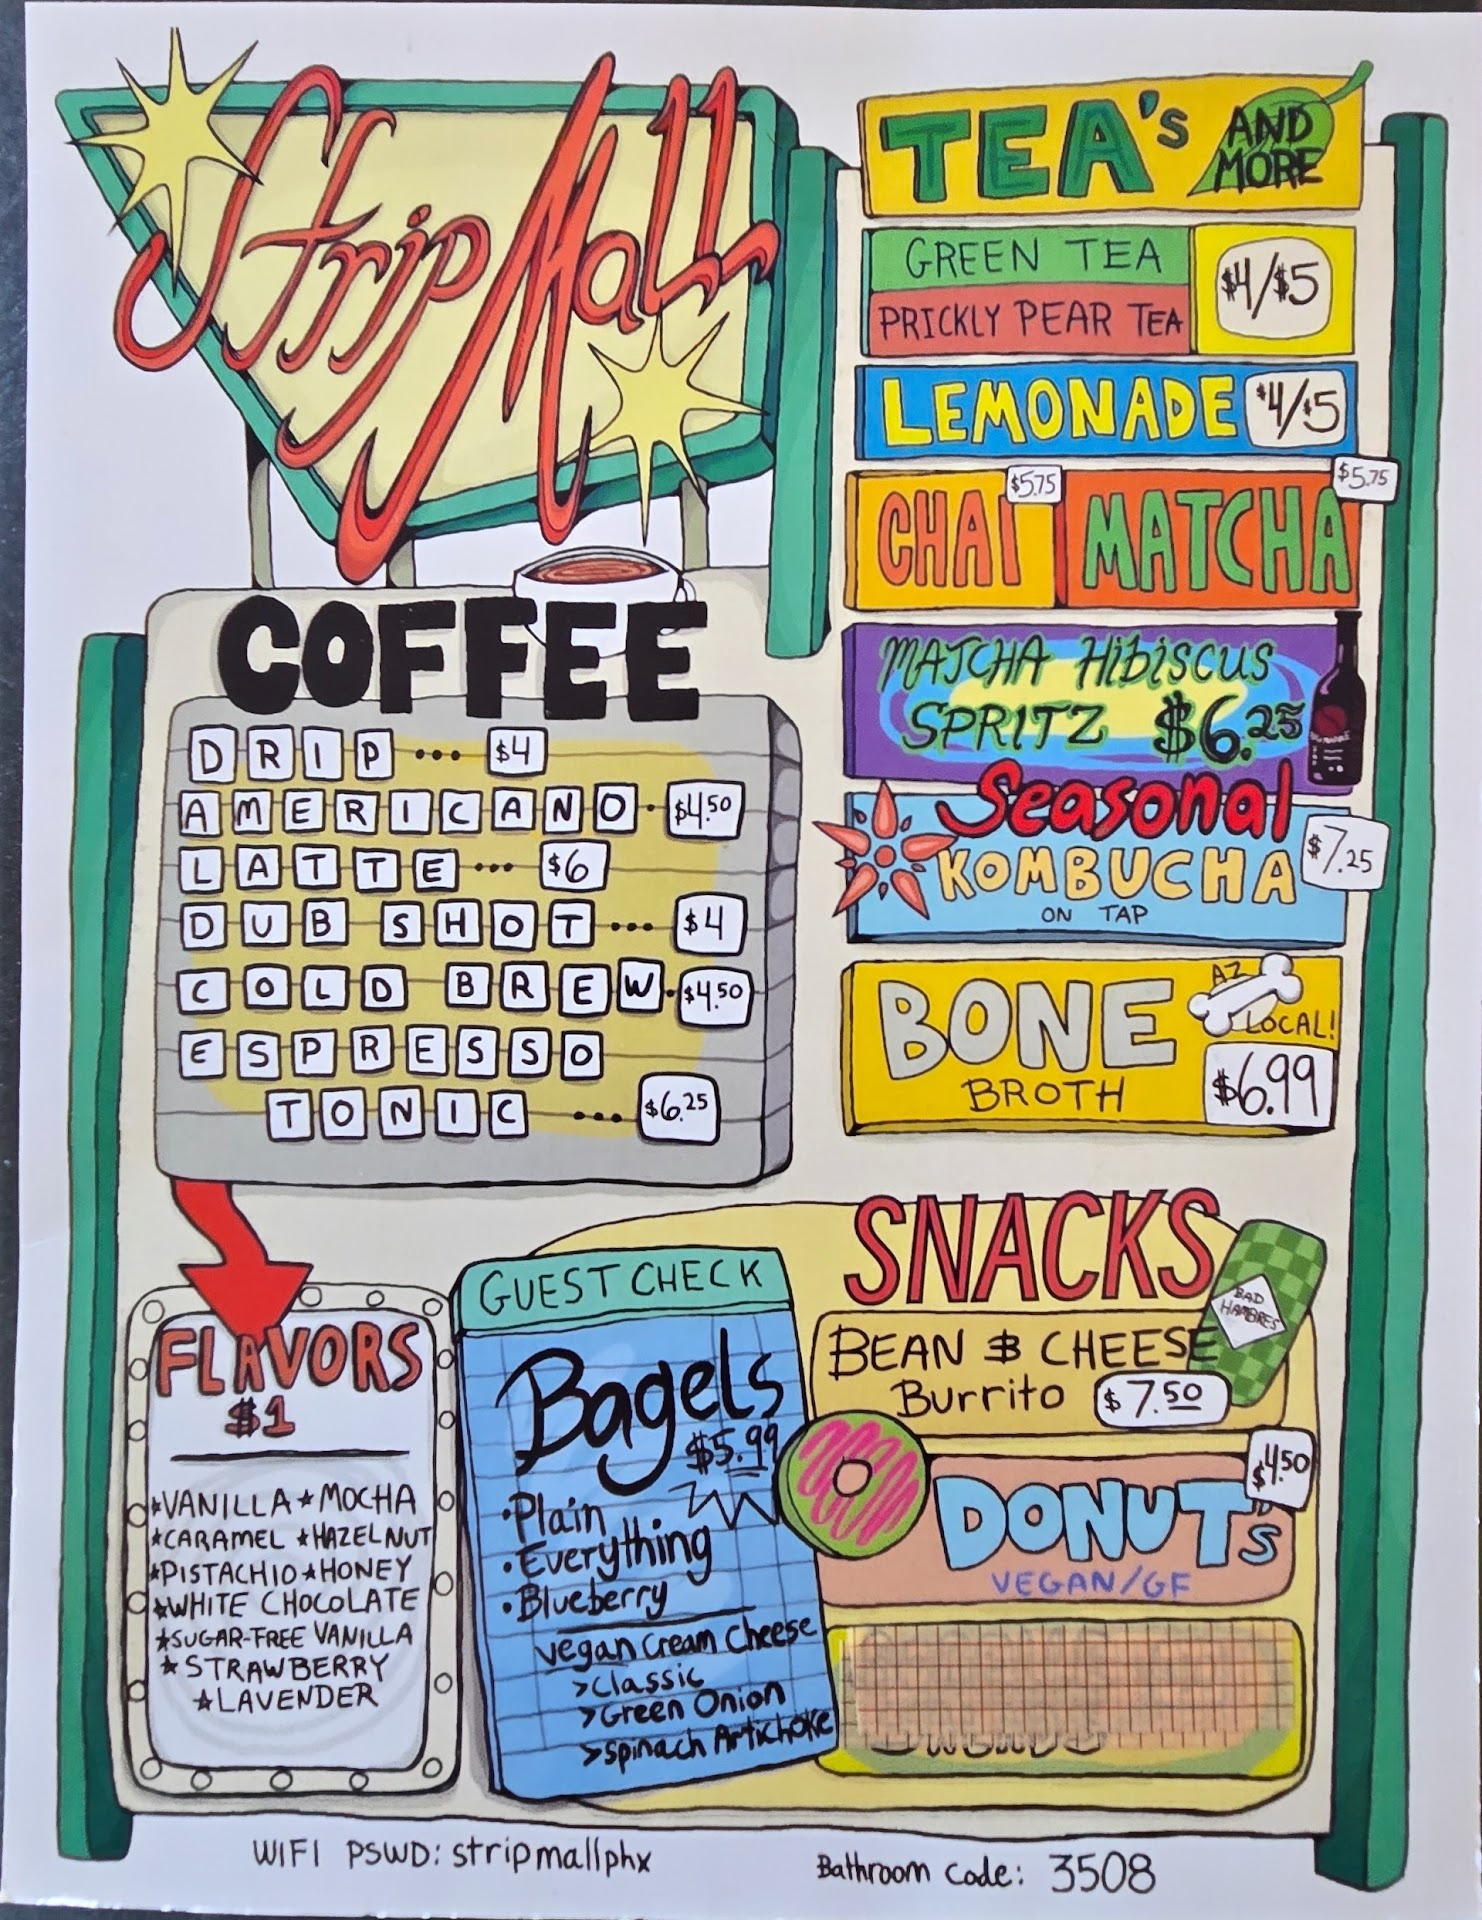 Strip Mall
COFFEE
DRIP ... $4
AMERICANO . $4.50
LATTE ... $6
DUB SHOT ... $4
COLD BREW . $4.50
ESPRESSO
TONIC ... $6.25
FLAVORS
$1
★VANILLA ★MOCHA
★CARAMEL ★HAZELNUT
★PISTACHIO ★HONEY
★WHITE CHOCOLATE
★SUGAR-FREE VANILLA
★STRAWBERRY
★LAVENDER
GUEST CHECK
Bagels
$5.99
•Plain
•Everything
•Blueberry
vegan cream cheese
>Classic
>Green Onion
>spinach Artichoke
TEA's AND
MORE
GREEN TEA
PRICKLY PEAR TEA
$4/$5
LEMONADE $4/$5
CHAI $5.75
MATCHA $5.75
MATCHA HiBiSCUS
SPRITZ $6.25
Seasonal
KOMBUCHA $7.25
ON TAP
BONE
BROTH
AZ
LOCAL!
$6.99
SNACKS
BAD
HAMBRES
BEAN & CHEESE
Burrito $7.50
DONUT's $4.50
VEGAN/GF
WIFI PSWD: stripmallphx
Bathroom Code: 3508